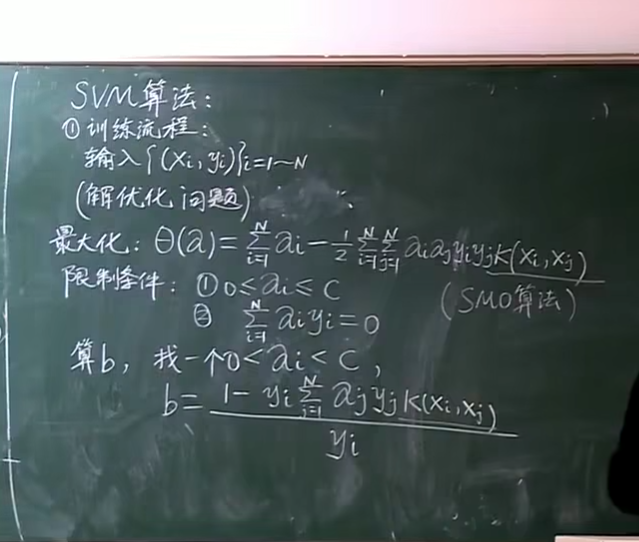 SVM算法:
① 训练流程:
输入{(xi, yi)}i=1~N
(解优化问题)
最大化: θ(a) = ∑_{i=1}^{N} ai - 1/2 ∑_{i=1}^{N} ∑_{j=1}^{N} ai aj yi yj K(xi, xj)
限制条件: ① 0 ≤ ai ≤ C (SMO算法)
② ∑_{i=1}^{N} ai yi = 0
算b, 找一个0 < ai < C,
b = (1 - yi ∑_{i=1}^{N} aj yj K(xi, xj)) / yi